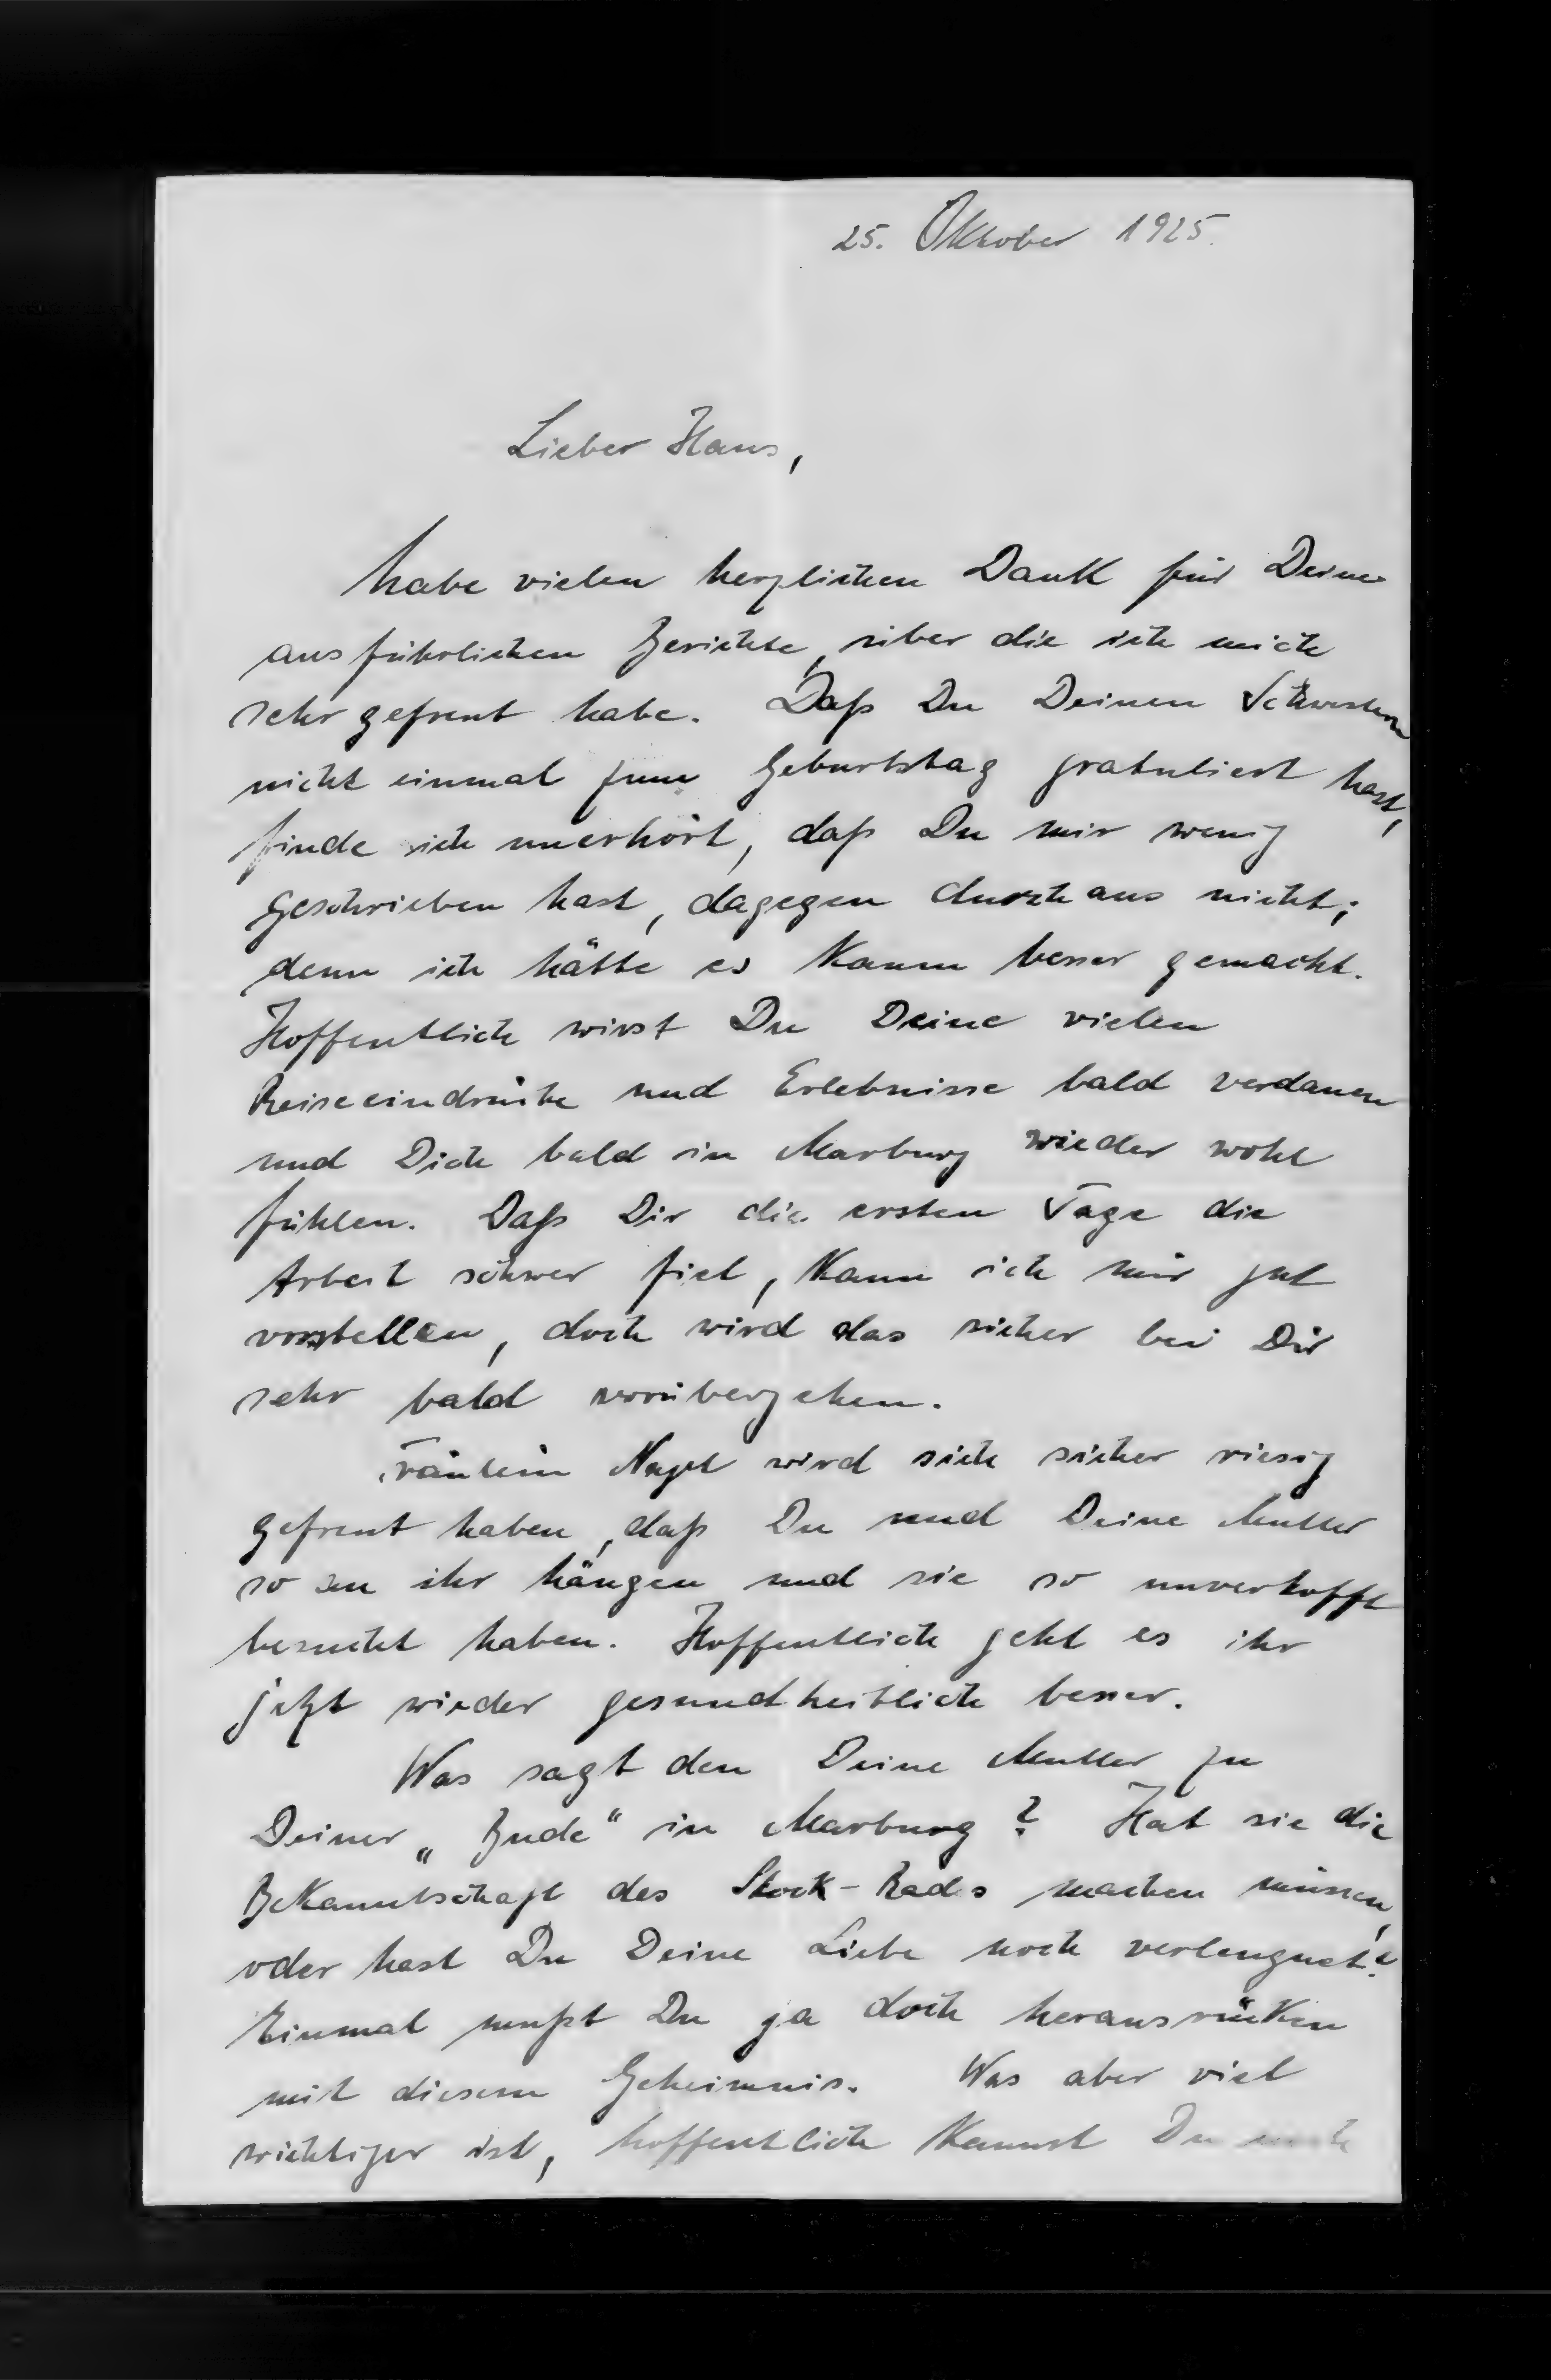 25. Oktober 1925.
Lieber Hans,
habe vielen herzlichen Dank für Deine
ausführlichen Berichte, über die ich mich
sehr gefreut habe. Daß Du Deinen Schwestern
nicht einmal zum Geburtstag gratuliert hast,
finde ich unerhört, daß Du mir wenig
geschrieben hast, dagegen durchaus nicht;
denn ich hätte es kaum besser gemacht.
Hoffentlich wirst Du Deine vielen
Reiseeindrücke und Erlebnisse bald verdauen
und Dich bald in Marburg wieder wohl
fühlen. Daß Dir die ersten Tage die
Arbeit schwer fiel, kann ich mir gut
vorstellen, doch wird das sicher bei Dir
sehr bald vorübergehen.
Fräulein Nagel wird sich sicher riesig
gefreut haben, daß Du und Deine Mutter
so an ihr hängen und sie so unverhofft
besucht haben. Hoffentlich geht es ihr
jetzt wieder gesundheitlich besser.
Was sagt den Deine Mutter zu
Deiner „Bude“ in Marburg? Hat sie die
Bekanntschaft des Stock-Rads machen müssen,
oder hast Du Deine Liebe noch verleugnet?
Einmal mußt Du ja doch herausrücken
mit diesem Geheimnis. Was aber viel
wichtiger ist, hoffentlich kannst Du noch